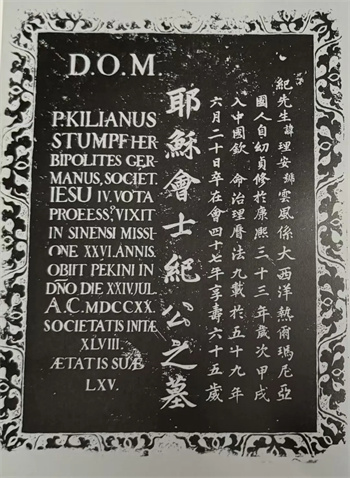 D.O.M.
P.KILIANUS
STUMPF HER
BIPOLITES GER
MANUS, SOCIET.
IESU IV. VOTA
PROFESS⁹ VIXIT
IN SINENSI MISSI
ONE XXVI. ANNIS.
OBIIT PEKINI IN
DÑO DIE XXIV JUL.
A.C. MDCCXX.
SOCIETATIS INITÆ
XLVIII.
ÆTATIS SUÆ
LXV.
耶穌會士紀公之墓
紀先生諱理安號雲風係大西洋熱爾瑪尼亞
國人自幼貞修於康熙三十三年歲次甲戌
入中國欽 命治理曆法九載於五十九年
六月二十日卒在會四十七年享壽六十五歲